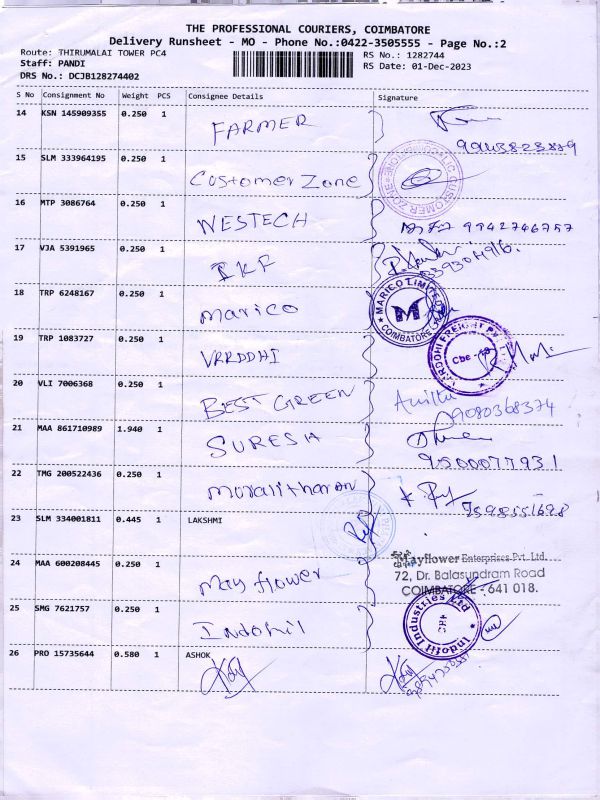 THE PROFESSIONAL COURIERS, COIMBATORE
Delivery Runsheet - MO - Phone No.:0422-3505555 - Page No.:2
Route: THIRUMALAI TOWER PC4
RS No.: 1282744
Staff: PANDI
RS Date: 01-Dec-2023
DRS No.: DCJB128274402
S No Consignment No Weight PCS Consignee Details Signature
14 KSN 145909355 0.250 1 FARMER
15 SLM 333964195 0.250 1 Costomer Zone
16 MTP 3086764 0.250 1 WESTECH 9942746757
17 VJA 5391965 0.250 1 IKF
18 TRP 6248167 0.250 1 Marico
MARICO LIMITED
M
COIMBATORE
19 TRP 1083727 0.250 1 VARDDHI
20 VLI 7006368 0.250 1 BEST GREEN 9080368374
21 MAA 861710989 1.940 1 SURESH 9500077931
22 TMG 200522436 0.250 1 Muralitharan
23 SLM 334001811 0.445 1 LAKSHMI
24 MAA 600208445 0.250 1 May flower
Mayflower Enterprises Pvt. Ltd.
72, Dr. Balasundram Road
COIMBATORE - 641 018.
25 SMG 7621757 0.250 1 Indofil
Indofil Industries Ltd
26 PRO 15735644 0.580 1 ASHOK